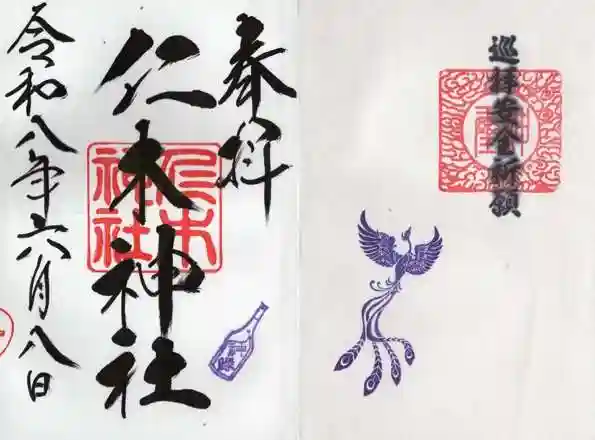 巡拝安全祈願
奉拝
仁木神社
仁木
神社
令和八年六月八日